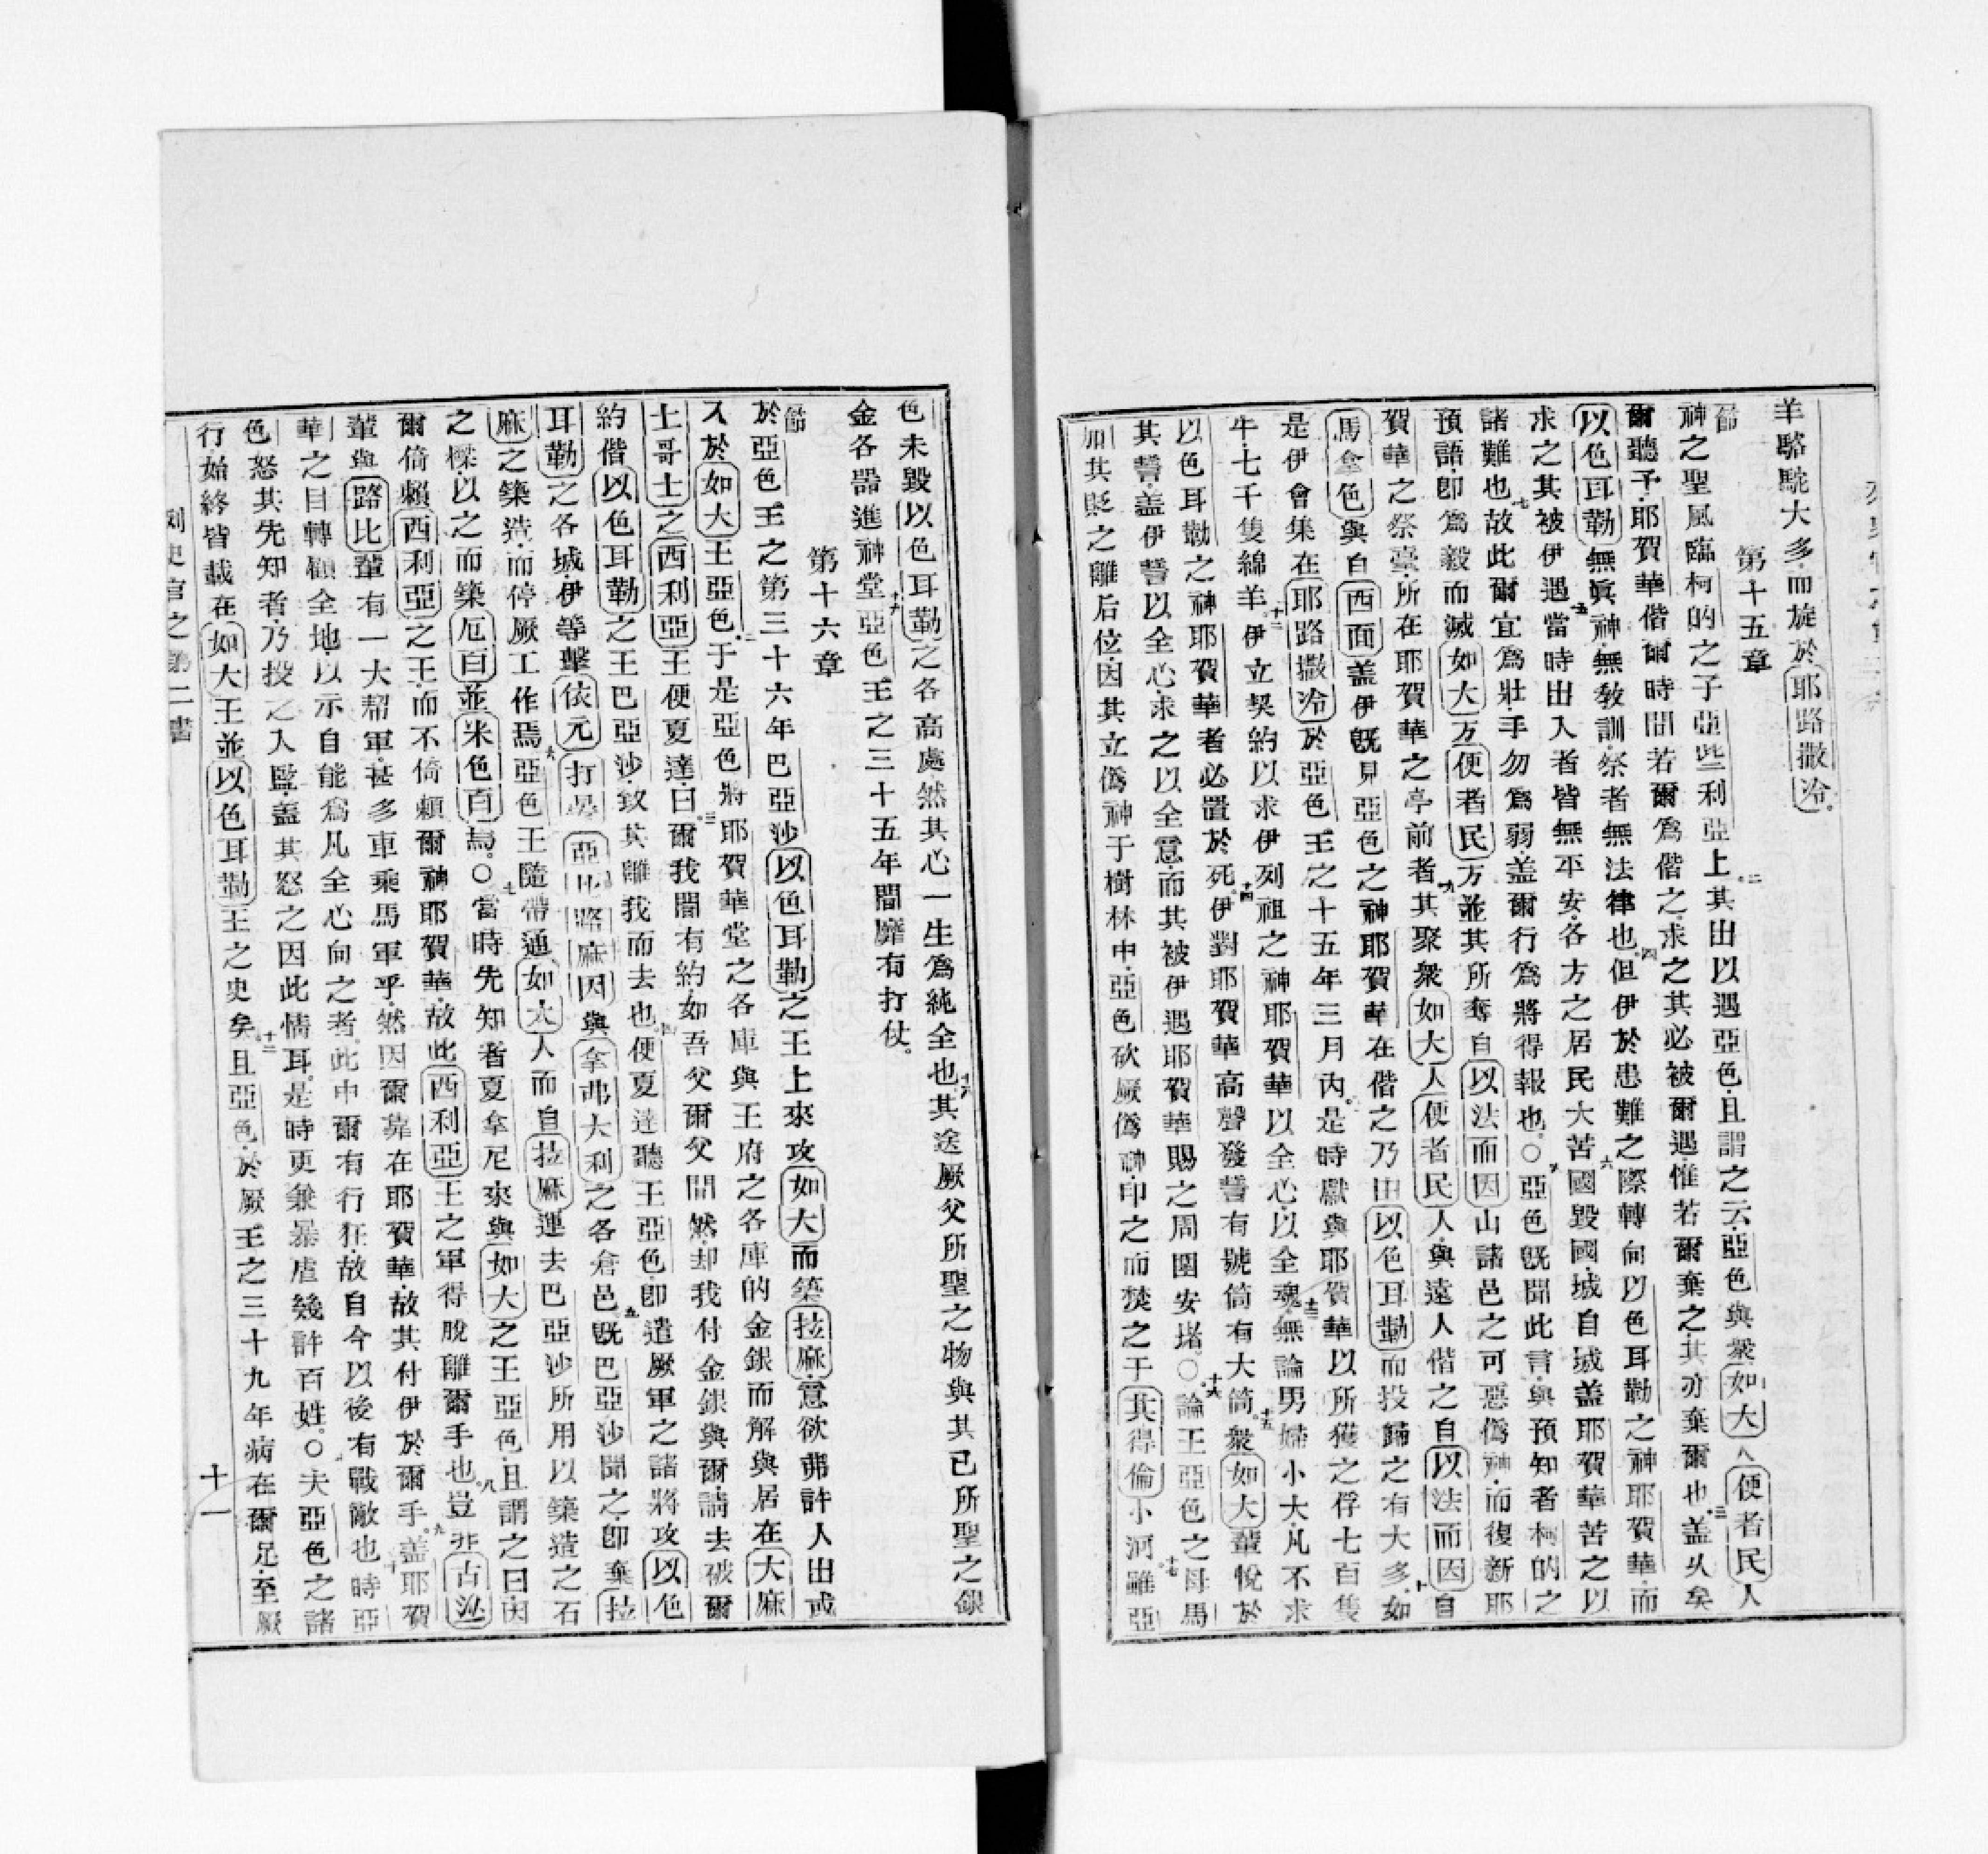 羊駱駝大多而旋於耶路撒冷。
第十五章
節神之聖風臨柯的之子亞些利亞上。二其出以遇亞色、且謂之云、亞色與衆如大人便者民人
爾聽予、耶賀華偕爾時間若爾爲偕之、求之其必被爾遇、惟若爾棄之其亦棄爾也。三蓋久矣
以色耳勒無眞神、無敎訓祭者無法律也。四但伊於患難之際轉向以色耳勒之神耶賀華、而
求之其被伊遇。五當時出入者皆無平安、各方之居民大苦。六國毀國、城自城蓋耶賀華苦之以
諸難也。七故此爾宜爲壯、手勿爲弱、蓋爾行爲將得報也。○八亞色旣聞此言、與預知者柯的之
預語、卽爲毅而滅如大方便者民方並其所奪自以法而因山諸邑之可惡僞神、而復新耶
賀華之祭臺、所在耶賀華之亭前者。九其聚衆如大人便者民人與遠人偕之自以法而因自
馬拿色與自西面蓋伊旣見亞色之神耶賀華在偕之乃由以色耳勒而投歸之有大多。十如
是伊會集在耶路撒冷於亞色王之十五年三月內。是時獻與耶賀華以所獲之俘七百隻
牛、七千隻綿羊。十二伊立契約以求伊列祖之神耶賀華以全心、以全魂。十三無論男婦小大、凡不求
以色耳勒之神耶賀華者必置於死。十四伊對耶賀華高聲發誓有號筒有大筒。十五衆如大輩悅於
其誓、蓋伊誓以全心、求之以全意、而其被伊遇耶賀華賜之周圍安堵。○十六論王亞色之母馬
加其貶之離后位、因其立僞神于樹林中、亞色砍厥僞神、印之而焚之于其得倫小河。十七雖亞
色未毀以色耳勒之各高處、然其心一生爲純全也。十八其送厥父所聖之物與其已所聖之銀
金各器進神堂。十九亞色王之三十五年間靡有打仗。
第十六章
節於亞色王之第三十六年巴亞沙以色耳勒之王上來攻如大而築拉麻、意欲弗許人出或
入於如大王亞色。二于是亞色將耶賀華堂之各庫與王府之各庫的金銀而解與居在大麻
士哥士之西利亞王便夏達、曰。三爾我閒有約、如吾父爾父閒然、却我付金銀與爾、請去破爾
約偕以色耳勒之王巴亞沙、致其離我而去也。四便夏達聽王亞色、卽遣厥軍之諸將攻以色
耳勒之各城、伊等擊依元打晏亞比路麻因與拿弗大利之各倉邑。五旣巴亞沙聞之、卽棄拉
麻之築造、而停厥工作焉。六亞色王隨帶通如大人而自拉麻運去巴亞沙所用以築造之石
之樑、以之而築厄百並米色百焉。○七當時先知者夏拿尼來與如大之王亞色、且謂之曰、因
爾倚賴西利亞之王、而不倚賴爾神耶賀華、故此西利亞王之軍得脫離爾手也。八豈非古沙
輩與路比輩有一大幫軍、甚多車乘馬軍乎、然因爾靠在耶賀華、故其付伊於爾手。九蓋耶賀
華之目轉顧全地、以示自能爲凡全心向之者。此中爾有行狂、故自今以後有戰敵也。十時亞
色怒其先知者、乃投之入監、蓋其怒之因此情耳。是時更兼暴虐幾許百姓。○夫亞色之諸
行、始終皆載在如大王並以色耳勒王之史矣。十二且亞色、於厥王之三十九年病在爾足、至厥
列史官之第二書
十一